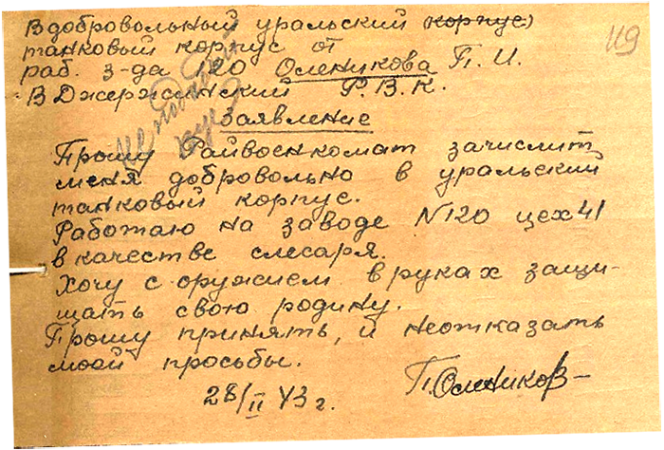 В добровольный уральский корпус)
танковый корпус от
раб. з-да 120 Оленикова П. И.
В Джержинский Р.В.К.
119
Заявление
Прошу Райвоенкомат зачислит
меня добровольно в уральский
танковый корпус.
Работаю на заводе N120 цех 41
в качестве слесаря.
Хочу с оружием в руках защи-
щать свою родину.
Прошу принять, и неотказать
моей просьбы.
28/II 43 г.
П.Олеников